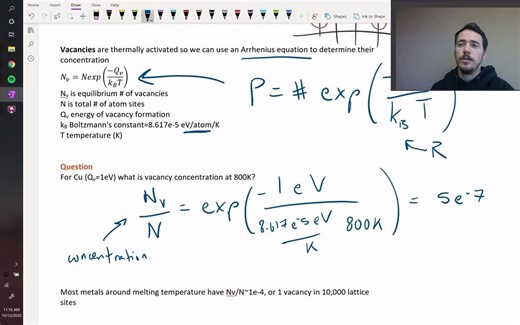 Draw
Shapes
Ink to Shape
Vacancies are thermally activated so we can use an Arrhenius equation to determine their
concentration
Nᵥ = Nexp(−Qᵥ / k_BT)
Nᵥ is equilibrium # of vacancies
N is total # of atom sites
Qᵥ energy of vacancy formation
k_B Boltzmann's constant=8.617e-5 eV/atom/K
T temperature (K)
P = # exp(
k_B T )
R
Question
For Cu (Qᵥ=1eV) what is vacancy concentration at 800K?
Nᵥ / N = exp( −1 eV / 8.617e-5 eV/K 800K ) = 5e-7
concentration
Most metals around melting temperature have Nv/N~1e-4, or 1 vacancy in 10,000 lattice
sites
11:16 AM
10/12/2020